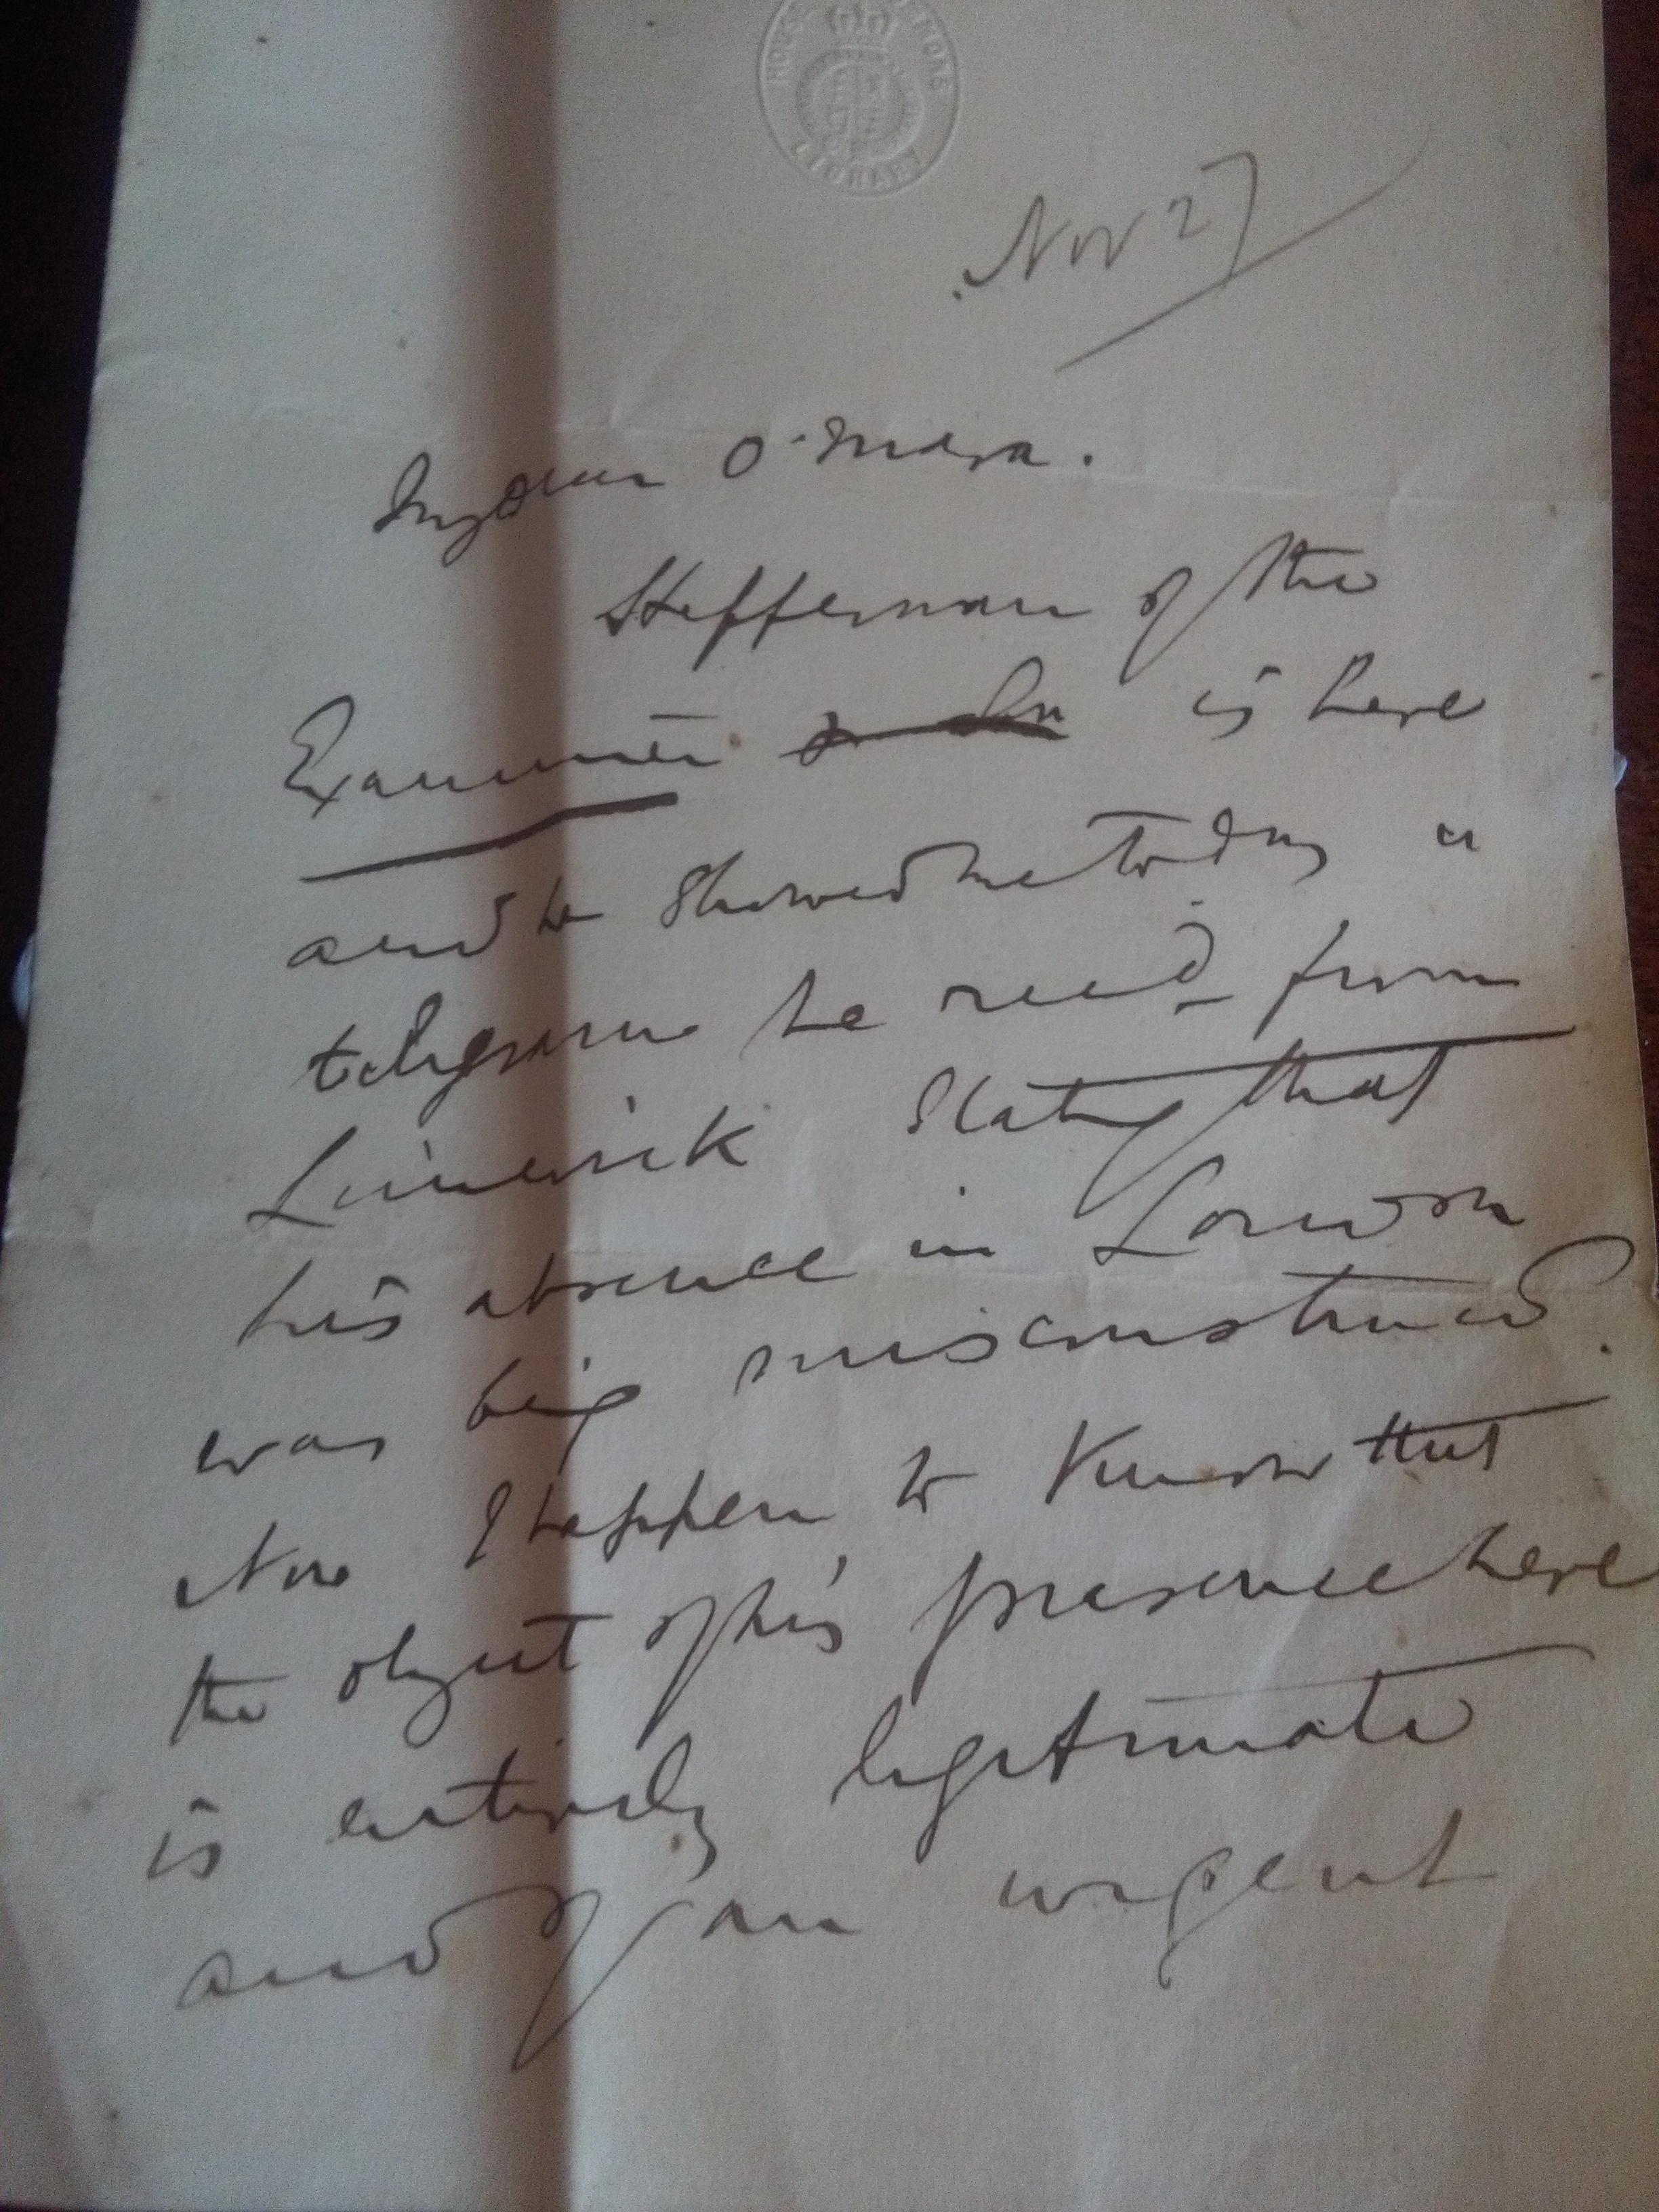 HOUSE LIBRARY
Nov 27
My dear O'Mara.
Heffernan of the
Examiner is here
and he showed me today a
telegram he recd from
Limerick stating that
his absence in London
was being misconstrued.
Now I happen to know that
the object of his presence here
is entirely legitimate
and of an urgent